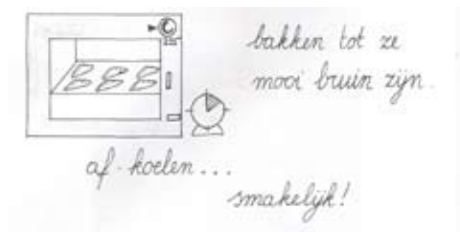 bakken tot ze
mooi bruin zijn.
af-koelen...
smakelijk!